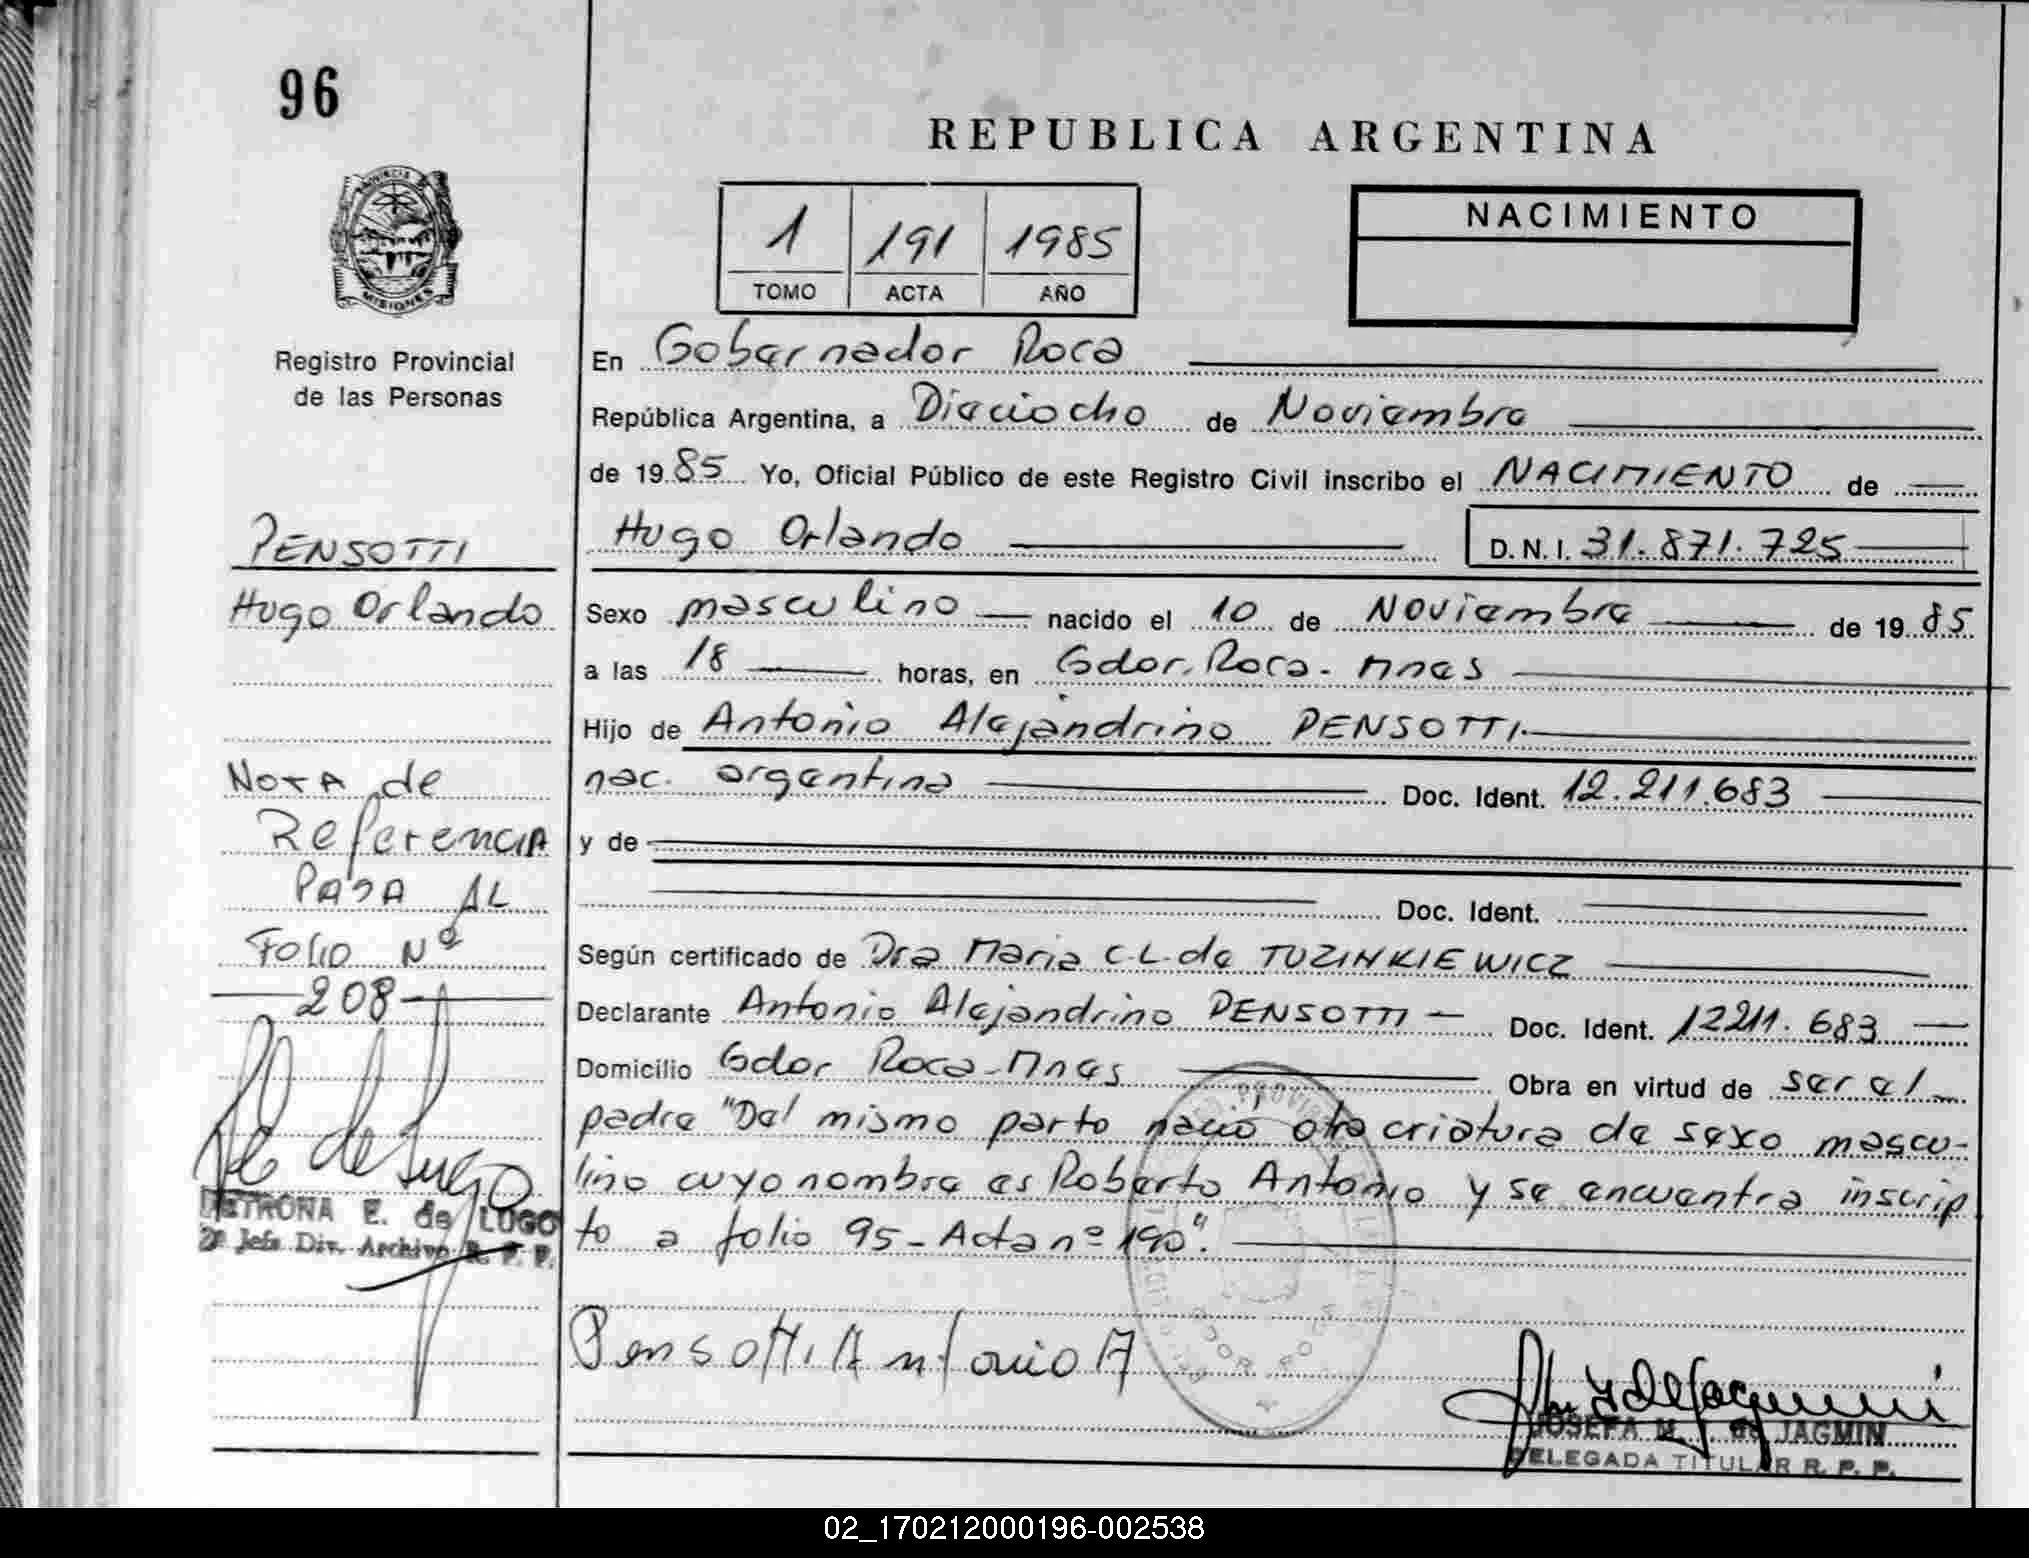 96
REPUBLICA ARGENTINA
NACIMIENTO
1 191 1985
TOMO ACTA AÑO
PROVINCIA DE
MISIONES
Registro Provincial
de las Personas
En Gobernador Roca
República Argentina, a Dieciocho de Noviembre
de 1985 Yo, Oficial Público de este Registro Civil inscribo el NACIMIENTO de
Hugo Orlando D.N.I. 31.871.725
PENSOTTI
Hugo Orlando
Sexo masculino nacido el 10 de Noviembre de 1985
a las 18 horas, en Gdor. Roca - Mnes
Hijo de Antonio Alejandrino PENSOTTI
nac. argentina Doc. Ident. 12.211.683
y de
Doc. Ident.
Nota de
Referencia
PASA AL
Folio Nº
208
Según certificado de Dra Maria C.L. de TUZINKIEWICZ
Declarante Antonio Alejandrino PENSOTTI Doc. Ident. 12211.683
Domicilio Gdor Roca - Mnes Obra en virtud de ser el
padre "Del mismo parto nació otra criatura de sexo mascu-
lino cuyo nombre es Roberto Antonio y se encuentra inscrip
to a folio 95 - Acta nº 190".
PETRONA E. de LUGO
2º Jefe Div. Archivo R. P. P.
Pensotti Antonio A
JOSEFA M. de JAGMIN
DELEGADA TITULAR R. P. P.
02_170212000196-002538